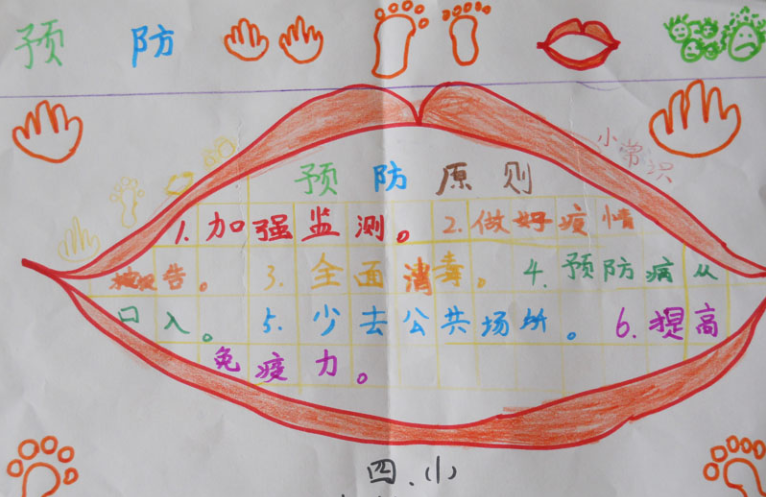 预防
小常识
预防原则
1.加强监测。2.做好疫情
报告。3.全面消毒。4.预防病从
口入。5.少去公共场所。6.提高
免疫力。
四.(1)